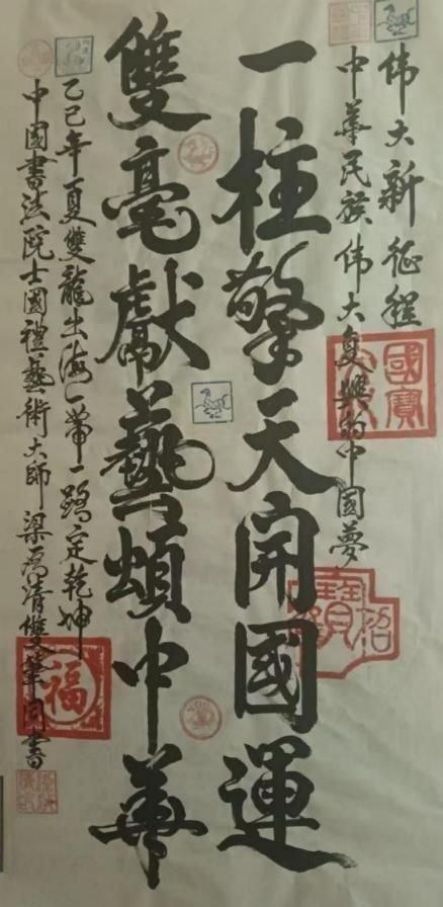 伟大新征程
中華民族伟大复興的中國夢
一柱擎天開國運
雙毫獻藝頌中華
乙己年夏雙龍出海一帶一路定乾坤
中國書法院士國禮藝術大師梁清雙筆同書
國寶
福